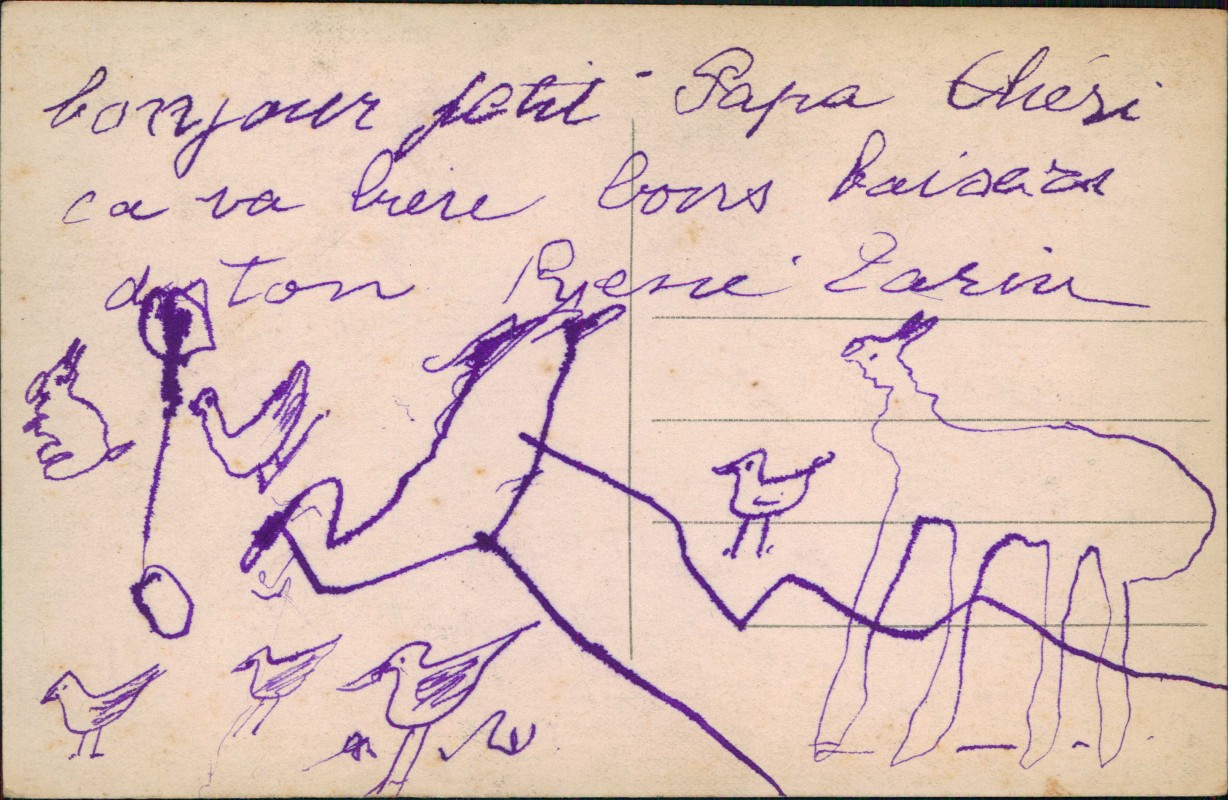 bonjour petit Papa Chéri
ca va bien bons baisers
de ton René Zarin